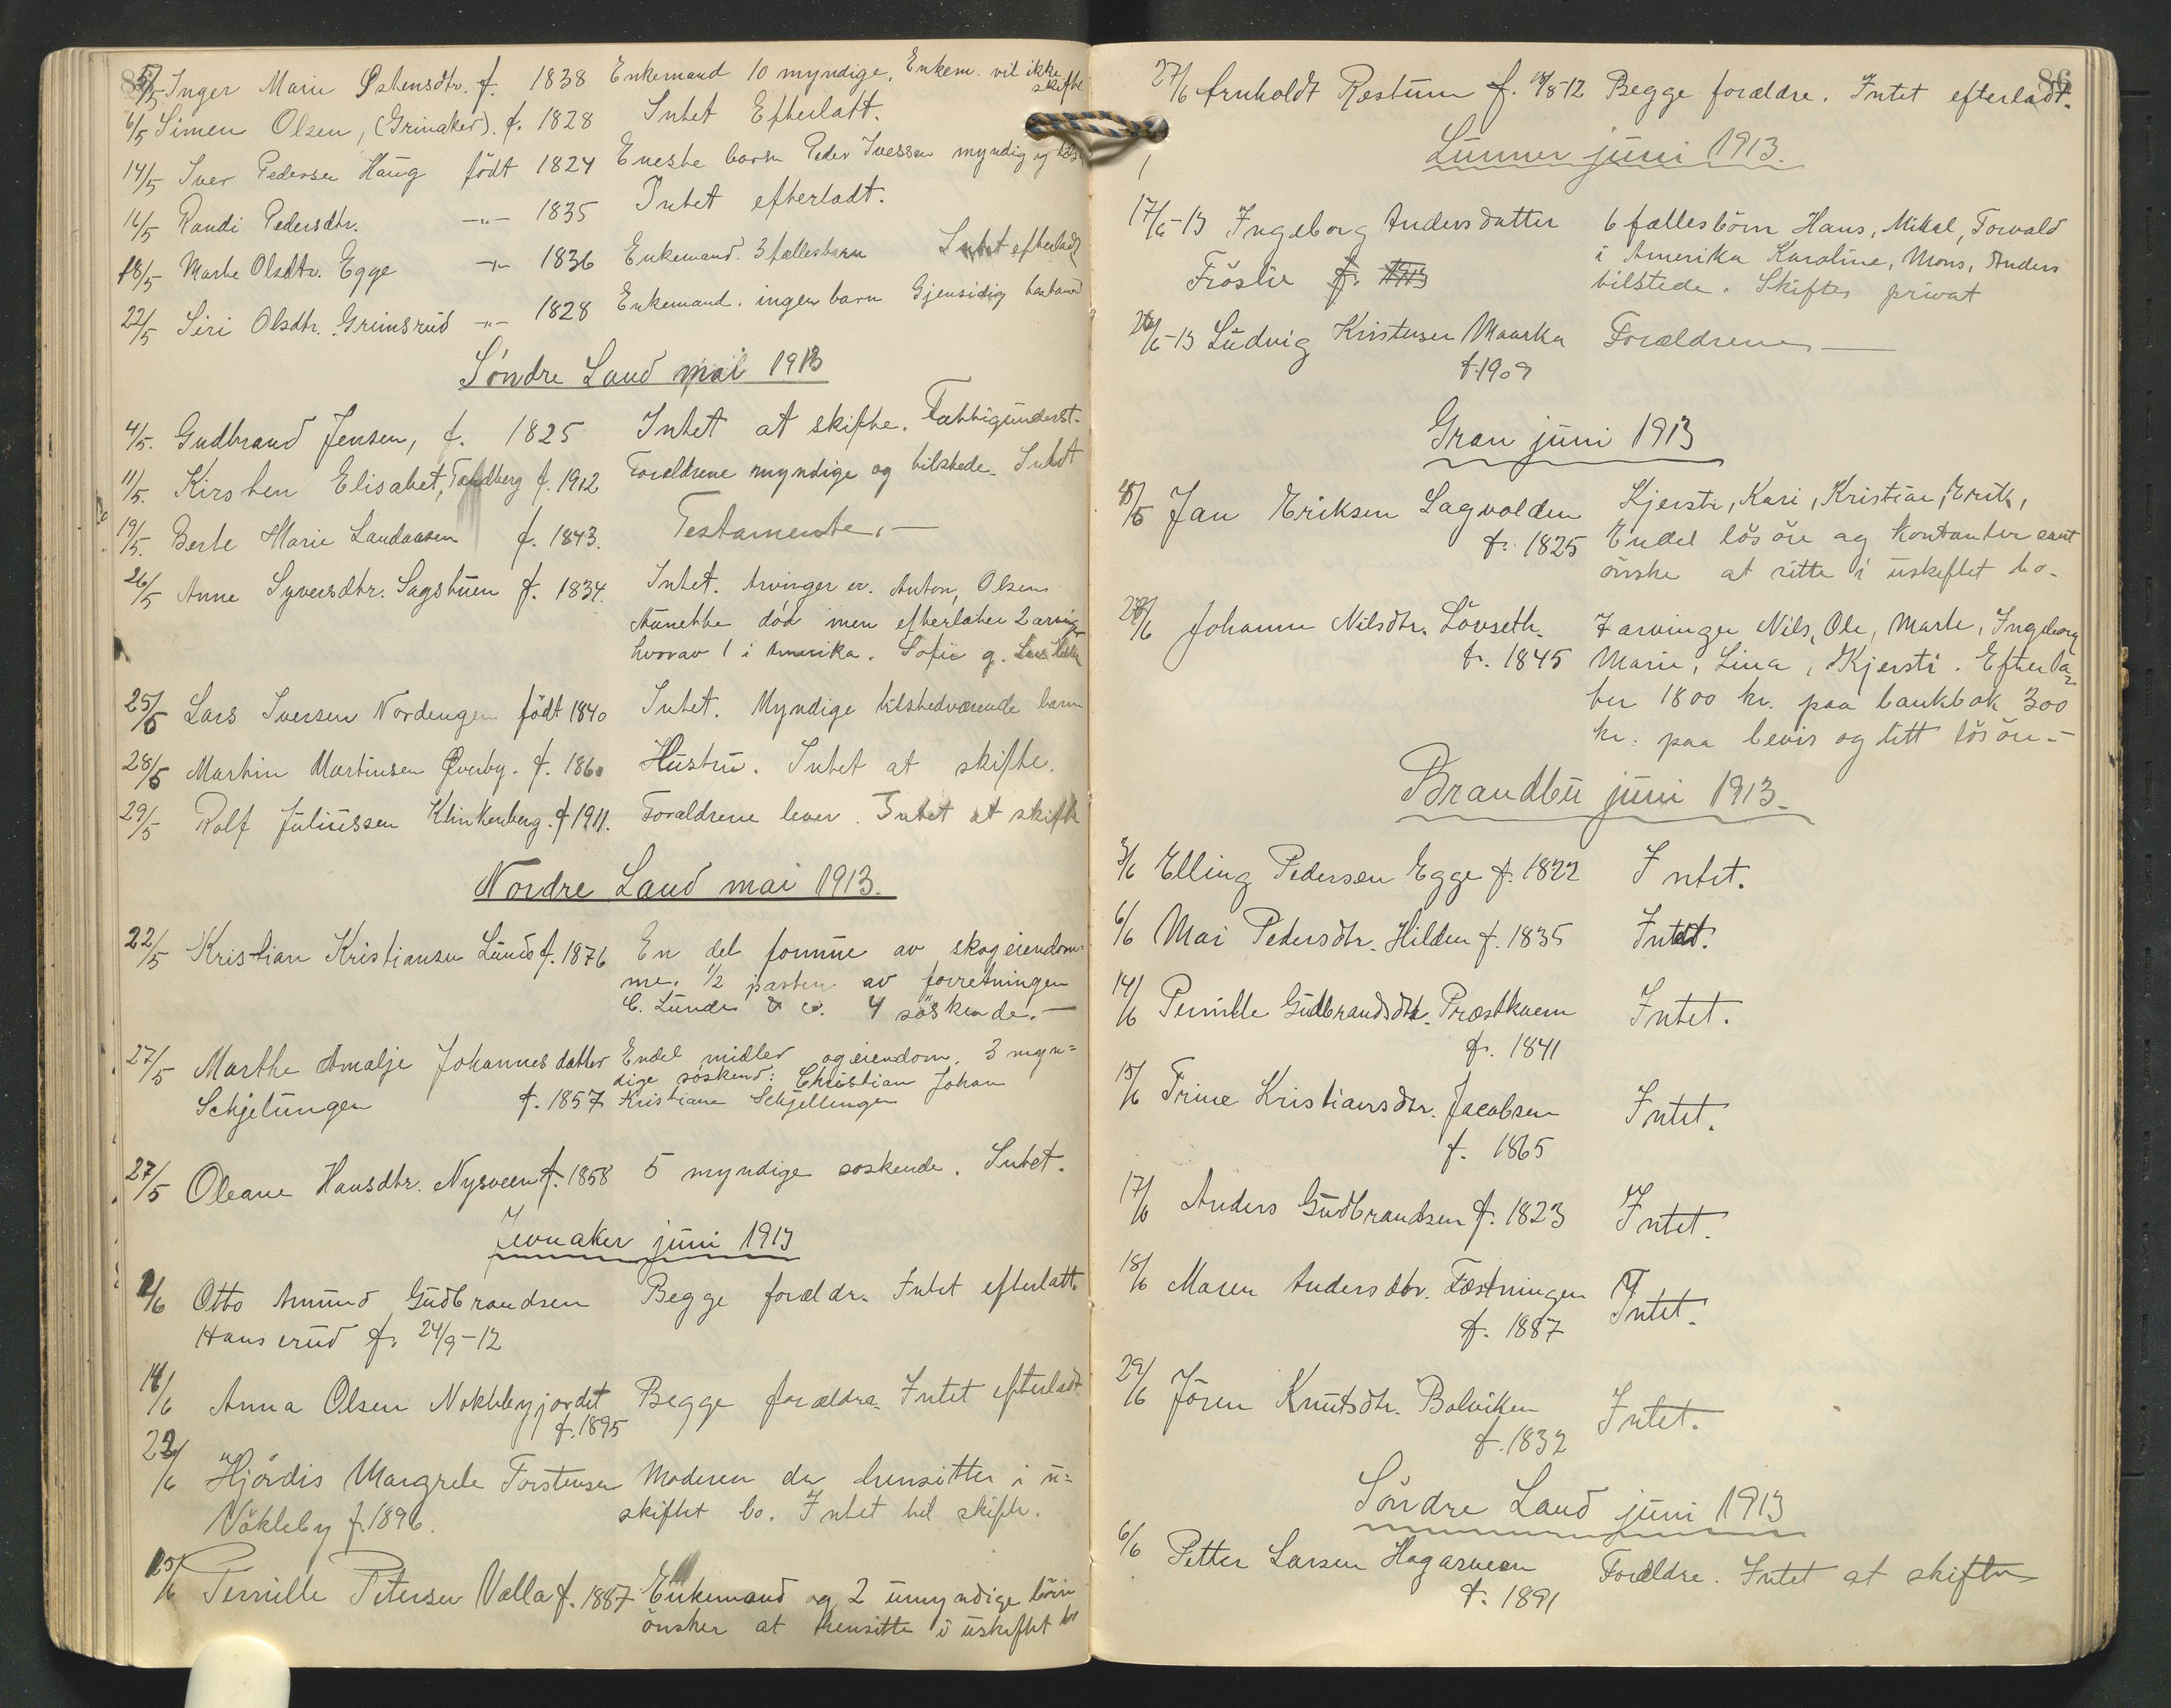 5/5 Inger Marie Østensdtr. f. 1838 Enkemand 10 myndige, Enkem. vil ikke skifte
6/5 Simen Olsen, (Grinaker). f. 1828 Intet Efterlatt.
14/5 Iver Pedersen Haug født 1824 Eneste barn Peder Iversen myndig og
16/5 Randi Pedersdtr. -"- 1835 Intet efterladt.
18/5 Marte Olsdtr. Egge -"- 1836 Enkemand. 3 fællesbarn Intet efterladt
22/5 Siri Olsdtr. Grimsrud -"- 1828 Enkemand. ingen barn Gjensidig
Söndre Land mai 1913
4/5. Gudbrand Jensen, f. 1825 Intet at skifte. Fattigunderst.
11/5. Kirsten Elisabet, Tandberg f. 1912 Forældrene myndige og tilstede. Intet
19/5. Berte Marie Landaasen f. 1843. Testamente. —
26/5 Anne Syversdtr. Sagstuen f. 1834. Intet. Arvinger er. Anton, Olsen
Aunette död men efterlater 2 arvinger
hvorav 1 i Amerika. Sofie g.
25/5 Lars Iversen Nordengen født 1840 Intet. Myndige tilstedværende barn
28/5 Martin Martinsen Øverby. f. 1860 Hustru. Intet at skifte.
29/5 Rolf Juliussen Klinkenberg. f 1911. Forældrene lever. Intet at skifte
Nordre Land mai 1913.
22/5 Kristian Kristiansen Lunde f. 1876 En del formue av skogeiendom-
me. 1/2 parten av forretningen
C. Lunde & co. 4 söskende. —
27/5 Marthe Amalje Johannesdatter Endel midler og eiendom. 3 myn=
dige söskend: Christian Johan
Schjelungen f. 1857 Kristiane Schjellungen
27/5 Oleane Hansdtr. Nysveen f. 1858 5 myndige søskende. Intet.
Jevnaker juni 1913
2/6 Otto Amund Gudbrandsen Begge forældr. Intet efterlatt.
Hanserud f. 24/9-12
14/6 Anna Olsen Nokklebyjordet Begge forældre. Intet efterladt
f. 1895
22/6 Hjördis Margrete Torstensen Moderen der hensitter i u=
Nökleby f. 1896. skiftet bo. Intet til skifte.
15/6 Pernille Petersen Valla f. 1887 Enkemand og 2 umyndige börn
önsker at hensitte i uskiftet bo
86
27/6 Arnholdt Røstum f. 18/8-12 Begge forældre. Intet efterladt.
Lunner juni 1913.
17/6-13 Ingeborg Andersdatter 6 fællesbörn Hans, Mikal, Torvald
i Amerika Karoline, Mons, Anders
Fröslie f. 1913 tilstede. Skiftes privat
26/6-13 Ludvig Kristensen Maarka Forældrene —
f. 1909
Gran juni 1913
5/6 Jan Eriksen Sagvolden Kjersti, Kari, Kristian, Erik,
f. 1825 Endel lösöre og kontanter samt
önske at sitte i uskiftet bo.
28/6 Johanne Nilsdtr. Lövseth. 7 arvinger Nils, Ole, Marte, Ingeborg
f. 1845 Marie, Lina, Kjersti. Efterla-
ter 1800 kr. paa bankbok 300
kr. paa bevis og litt lösöre. –
Brandbu juni 1913.
3/6 Elling Pedersen Egge f. 1822 Intet.
6/6 Mari Pedersdtr. Hilden f. 1835 Intet.
14/6 Pernille Gudbrandsdtr. Præstkvern Intet.
f. 1841
15/6 Trine Kristiansdtr. Jacobsen Intet.
f. 1865
17/6 Anders Gudbrandsen f. 1823 Intet.
18/6 Maren Andersdtr. Fæstningen Intet.
f. 1887
29/6 Jören Knutsdtr. Bolviken Intet.
f. 1832
Söndre Land juni 1913
6/6 Petter Larsen Hagasveen Forældre. Intet at skifte
f. 1891